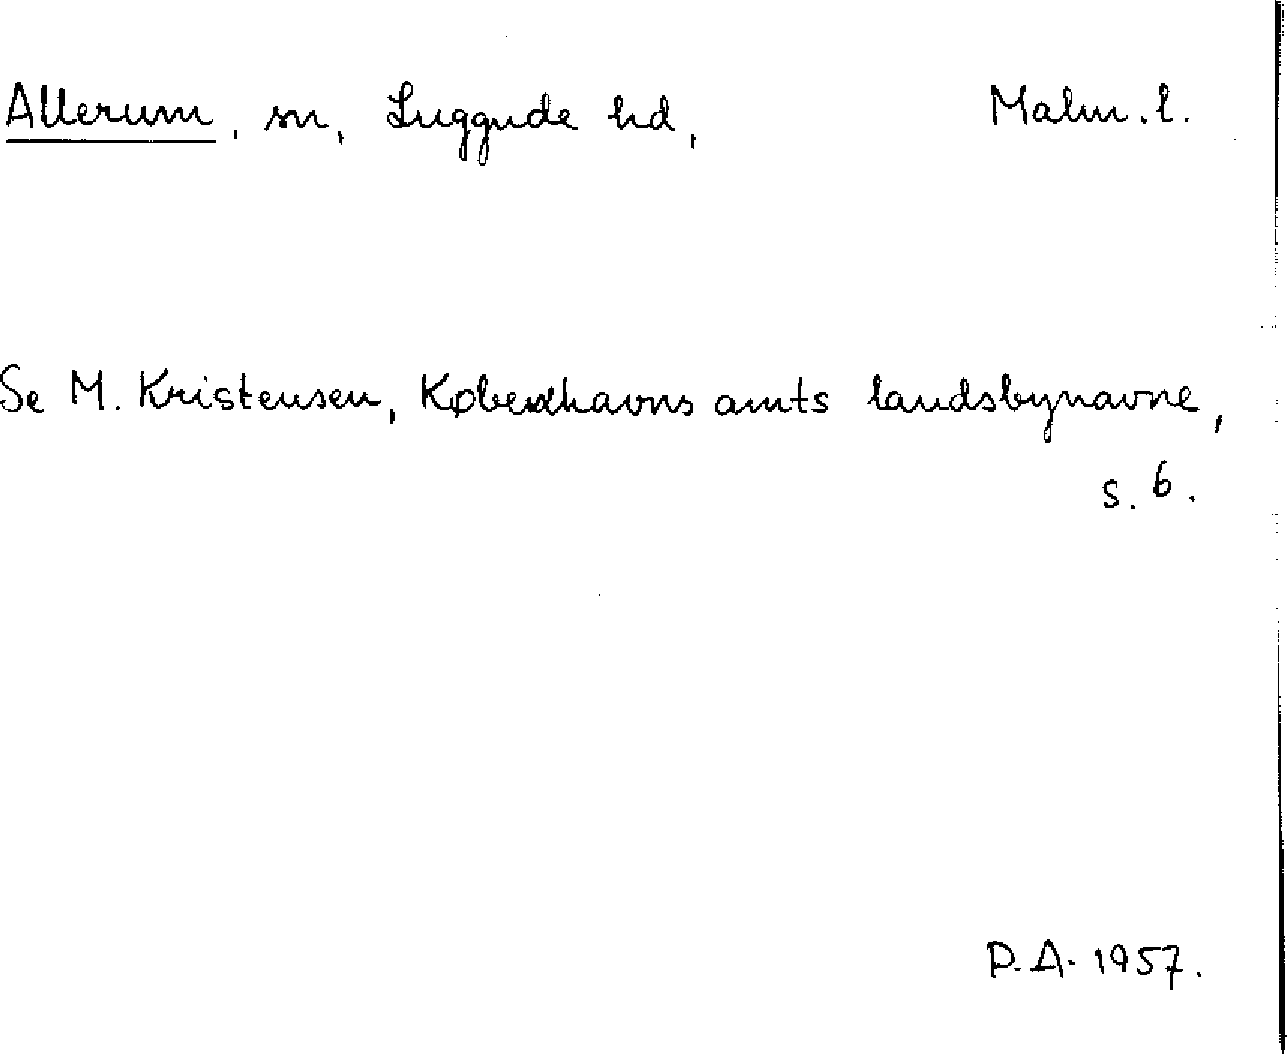 Allerum, sn, Luggude hd, Malm. l.
Se M. Kristensen, Københavns amts landsbynavne,
s. 6.
D. A. 1957.